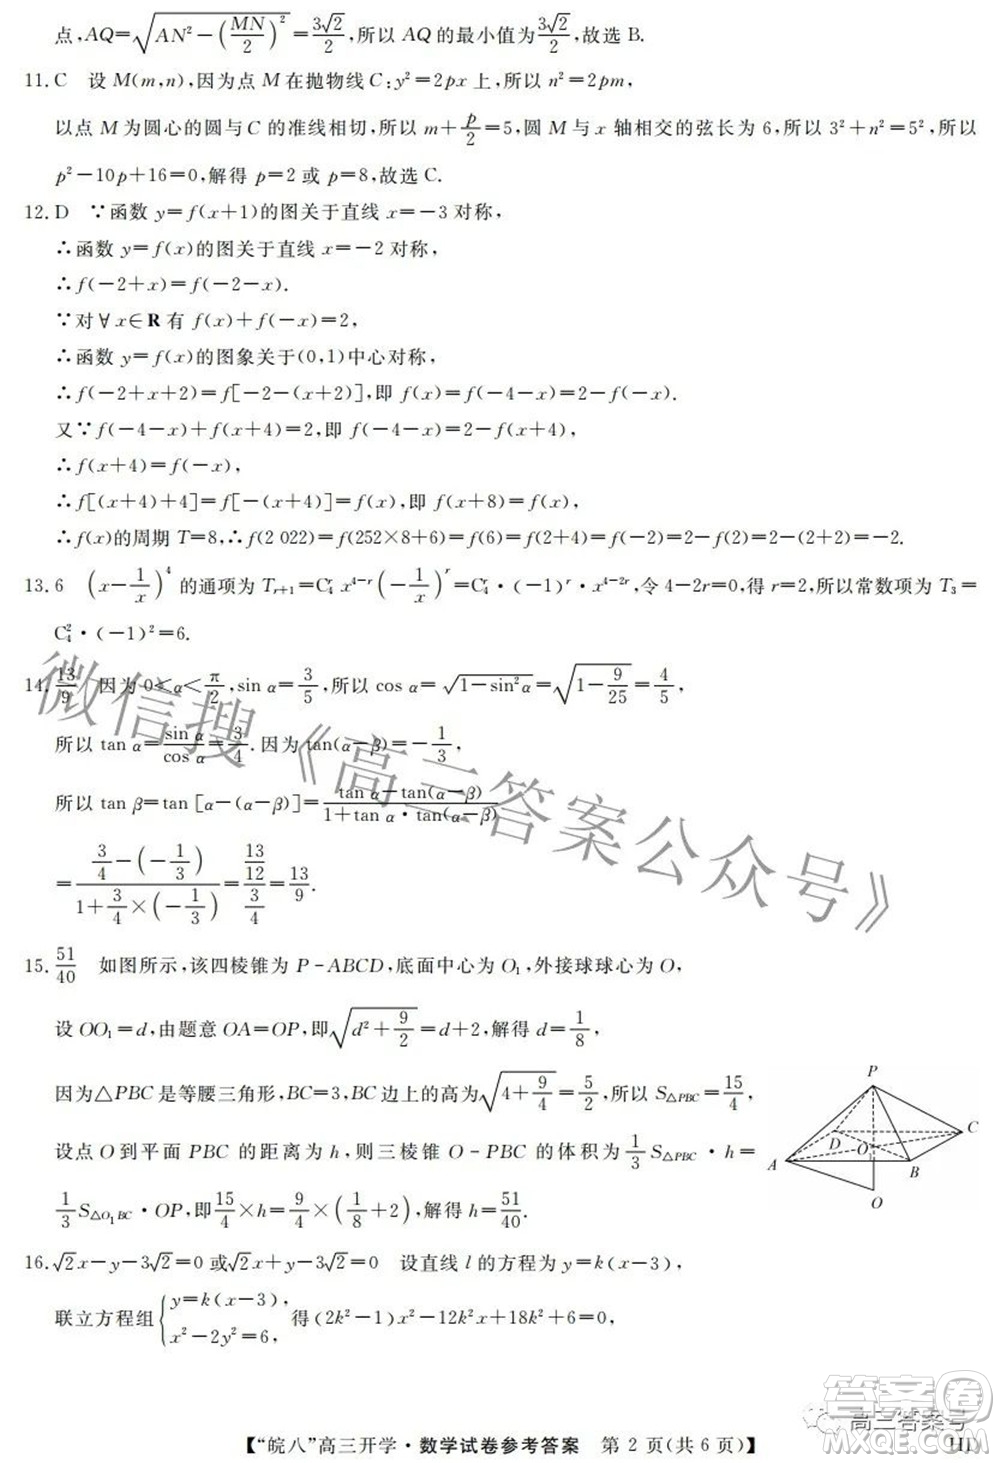 点,AQ=√(AN²−(MN/2)²)=3√2/2,所以 AQ 的最小值为3√2/2,故选 B.
11. C 设 M(m,n),因为点 M 在抛物线 C:y²=2px 上,所以 n²=2pm,
以点 M 为圆心的圆与C 的准线相切,所以 m+p/2=5,圆 M 与 x 轴相交的弦长为 6,所以 3²+n²=5²,所以
p²−10p+16=0,解得 p=2 或 p=8,故选 C.
12. D ∵函数 y=f(x+1)的图关于直线 x=−3 对称,
∴函数 y=f(x)的图关于直线 x=−2 对称,
∴f(−2+x)=f(−2−x).
∵对∀x∈R 有 f(x)+f(−x)=2,
∴函数 y=f(x)的图象关于(0,1)中心对称,
∴f(−2+x+2)=f[−2−(x+2)],即 f(x)=f(−4−x)=2−f(−x).
又∵f(−4−x)+f(x+4)=2,即 f(−4−x)=2−f(x+4),
∴f(x+4)=f(−x),
∴f[(x+4)+4]=f[−(x+4)]=f(x),即 f(x+8)=f(x),
∴f(x)的周期 T=8,∴f(2 022)=f(252×8+6)=f(6)=f(2+4)=f(−2)=2−f(2)=2−4=−2.
13. 6 (x−1/x)⁴ 的通项为 Tᵣ₊₁=C₄ʳ x⁴⁻ʳ(−1/x)ʳ=C₄ʳ·(−1)ʳ·x⁴⁻²ʳ,令 4−2r=0,得 r=2,所以常数项为 T₃=
C₄²·(−1)²=6.
14. 13/9 因为 0<α<π/2,sin α=3/5,所以 cos α=√(1−sin²α)=√(1−9/25)=4/5,
所以 tan α=sin α/cos α=3/4.因为 tan(α−β)=−1/3,
所以 tan β=tan [α−(α−β)]=(tan α−tan(α−β))/(1+tan α·tan(α−β))
=(3/4−(−1/3))/(1+3/4×(−1/3))=(13/12)/(3/4)=13/9.
15. 51/40 如图所示,该四棱锥为 P-ABCD,底面中心为 O₁,外接球球心为 O,
设 OO₁=d,由题意 OA=OP,即√(d²+9/2)=d+2,解得 d=1/8,
因为△PBC 是等腰三角形,BC=3,BC 边上的高为√(4+9/4)=5/2,所以 S△PBC=15/4,
设点 O 到平面 PBC 的距离为 h,则三棱锥 O-PBC 的体积为1/3 S△PBC·h=
1/3 S△O₁BC·OP,即15/4×h=9/4×(1/8+2),解得 h=51/40.
P
D
C
O₁
A
B
O
16. √2x−y−3√2=0 或√2x+y−3√2=0 设直线 l 的方程为 y=k(x−3),
联立方程组{y=k(x−3), x²−2y²=6, 得(2k²−1)x²−12k²x+18k²+6=0,
【“皖八”高三开学·数学试卷参考答案 第 2 页(共 6 页)】 HD
微信搜《高三答案公众号》
高三答案号
答案圈
MXQE.COM